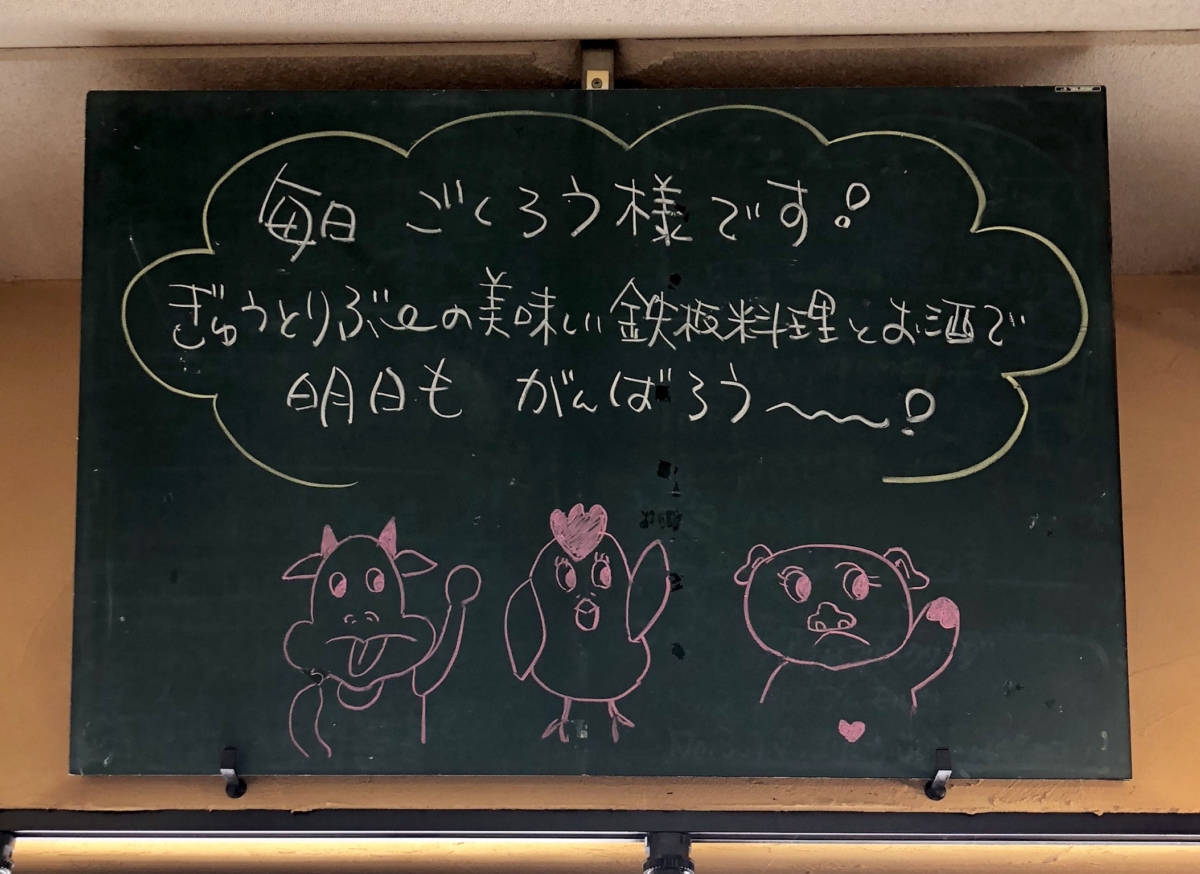 毎日 ごくろう様です!
ぎゅうとりぶぅの美味しい鉄板料理とお酒で
明日も がんばろう〜!